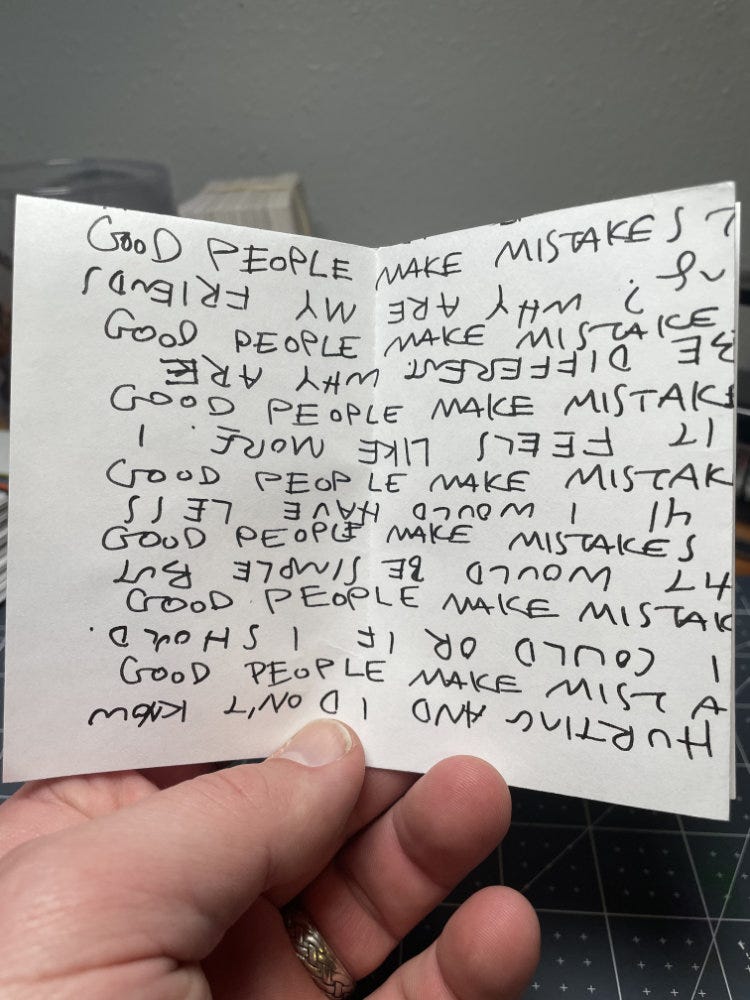 GOOD PEOPLE MAKE MISTAKES
GOOD PEOPLE MAKE MISTAKE
GOOD PEOPLE MAKE MISTAKE
GOOD PEOPLE MAKE MISTAK
GOOD PEOPLE MAKE MISTAKES
GOOD PEOPLE MAKE MISTAK
GOOD PEOPLE MAKE MISTA
HURTING AND I DON'T KNOW
I COULD OR IF I SHOULD.
WOULD BE SIMPLE BUT
I WOULD HAVE LESS
IT FEELS LIKE MORE. I
BE DIFFERENT. WHY ARE
? WHY ARE MY FRIENDS